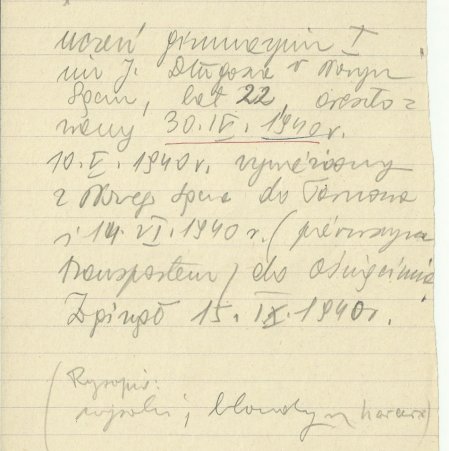 uczeń gimnazjum I
im J. Długosza w Nowym
Sączu, lat 22, areszto=
wany 30.IV.1940r.
10.V.1940r. wywieziony
z Nowego Sącza do Tarnowa
i 14.VI.1940r. (pierwszym
transportem) do Oświęcimia
Zginął 15.IX.1940r.
(Rysopis:
wysoki, blondyn